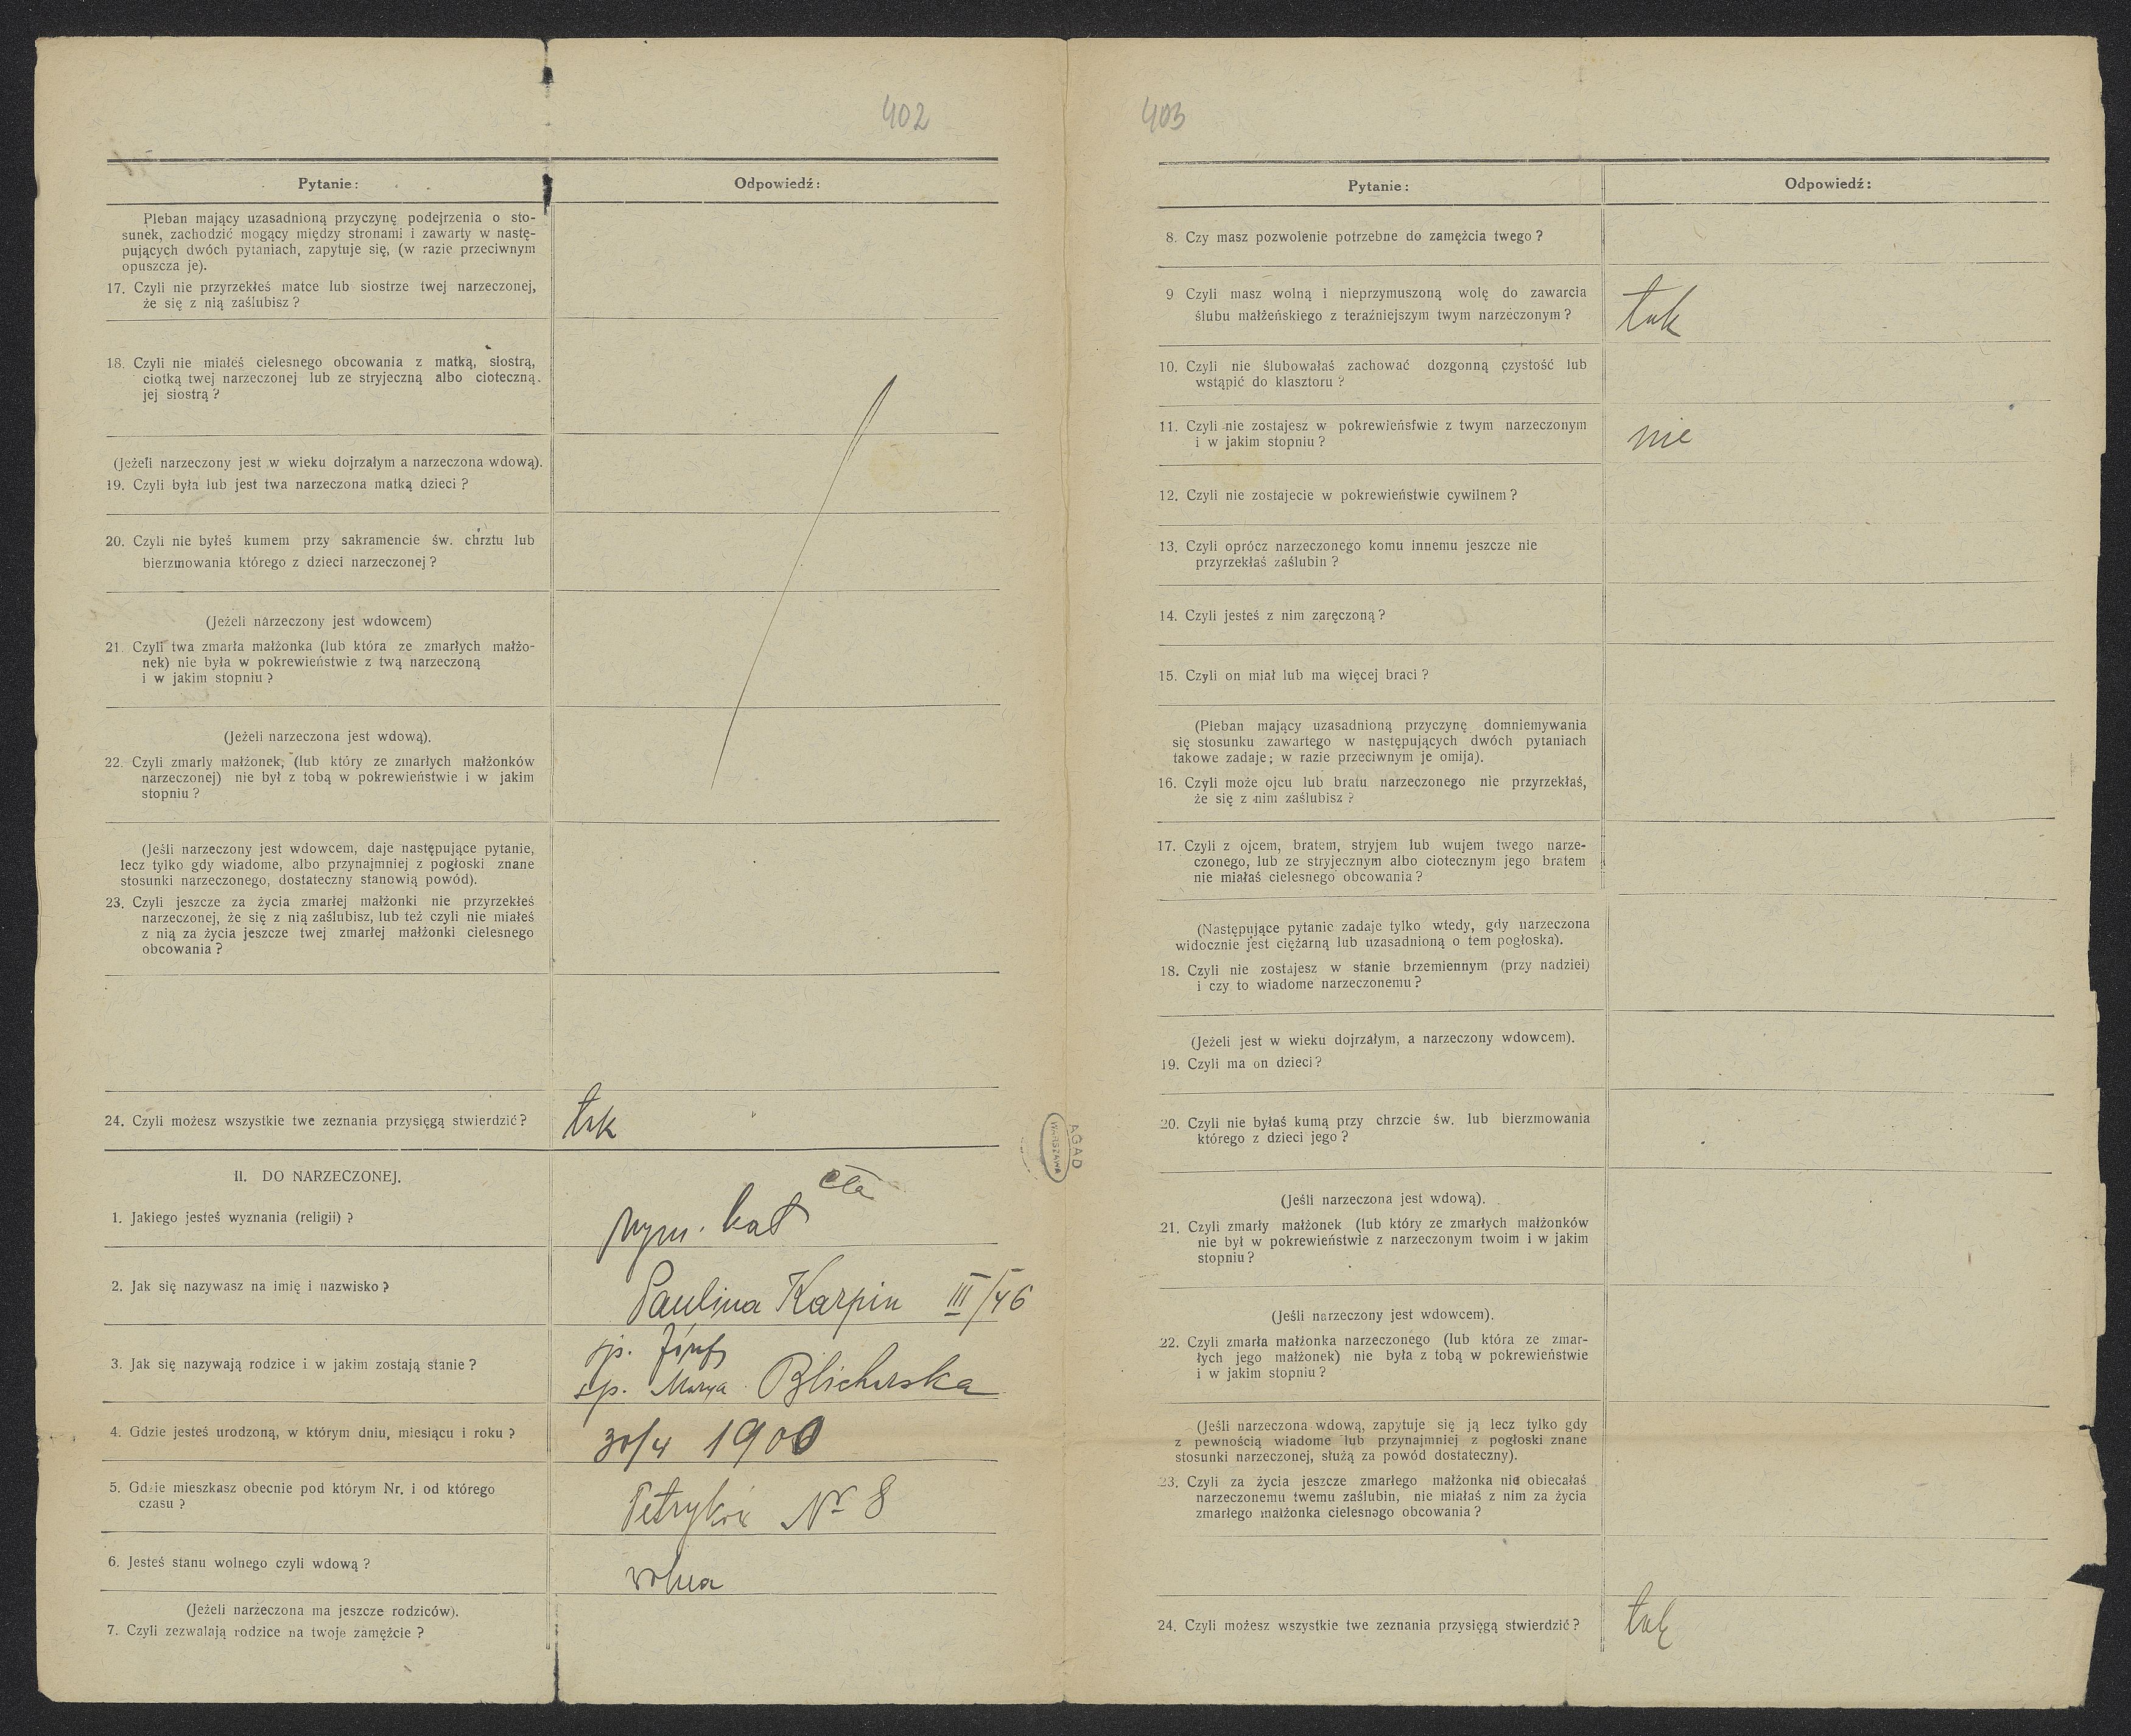 402
Pytanie:
Odpowiedź:
Pleban mający uzasadnioną przyczynę podejrzenia o sto-
sunek, zachodzić mogący między stronami i zawarty w nastę-
pujących dwóch pytaniach, zapytuje się, (w razie przeciwnym
opuszcza je).
17. Czyli nie przyrzekłeś matce lub siostrze twej narzeczonej,
że się z nią zaślubisz?
18. Czyli nie miałeś cielesnego obcowania z matką, siostrą,
ciotką twej narzeczonej lub ze stryjeczną albo cioteczną.
jej siostrą?
(Jeżeli narzeczony jest w wieku dojrzałym a narzeczona wdową).
19. Czyli była lub jest twa narzeczona matką dzieci?
20. Czyli nie byłeś kumem przy sakramencie św. chrztu lub
bierzmowania którego z dzieci narzeczonej?
(Jeżeli narzeczony jest wdowcem)
21. Czyli twa zmarła małżonka (lub która ze zmarłych małżo-
nek) nie była w pokrewieństwie z twą narzeczoną
i w jakim stopniu?
(Jeżeli narzeczona jest wdową).
22. Czyli zmarly małżonek, (lub który ze zmarłych małżonków
narzeczonej) nie był z tobą w pokrewieństwie i w jakim
stopniu?
(Jeśli narzeczony jest wdowcem, daje następujące pytanie,
lecz tylko gdy wiadome, albo przynajmniej z pogłoski znane
stosunki narzeczonego, dostateczny stanowią powód).
23. Czyli jeszcze za życia zmarłej małżonki nie przyrzekłeś
narzeczonej, że się z nią zaślubisz, lub też czyli nie miałeś
z nią za życia jeszcze twej zmarłej małżonki cielesnego
obcowania?
24. Czyli możesz wszystkie twe zeznania przysięgą stwierdzić?
tak
II. DO NARZECZONEJ.
1. Jakiego jesteś wyznania (religii)?
rzym. kat
2. Jak się nazywasz na imię i nazwisko?
Paulina Karpin III/46
3. Jak się nazywają rodzice i w jakim zostają stanie?
śp. Józef
śp. Marya Blicharska
4. Gdzie jesteś urodzoną, w którym dniu, miesiącu i roku?
30/4 1900
5. Gdzie mieszkasz obecnie pod którym Nr. i od którego
czasu?
Petryków Nr 8
6. Jesteś stanu wolnego czyli wdową?
wolna
(Jeżeli narzeczona ma jeszcze rodziców).
7. Czyli zezwalają rodzice na twoje zamęźcie?
AGAD
WARSZAWA
403
Pytanie:
Odpowiedź:
8. Czy masz pozwolenie potrzebne do zamęźcia twego?
9 Czyli masz wolną i nieprzymuszoną wolę do zawarcia
ślubu małżeńskiego z teraźniejszym twym narzeczonym?
tak
10. Czyli nie ślubowałaś zachować dozgonną czystość lub
wstąpić do klasztoru?
11. Czyli nie zostajesz w pokrewieństwie z twym narzeczonym
i w jakim stopniu?
nie
12. Czyli nie zostajecie w pokrewieństwie cywilnem?
13. Czyli oprócz narzeczonego komu innemu jeszcze nie
przyrzekłaś zaślubin?
14. Czyli jesteś z nim zaręczoną?
15. Czyli on miał lub ma więcej braci?
(Pleban mający uzasadnioną przyczynę domniemywania
się stosunku zawartego w następujących dwóch pytaniach
takowe zadaje; w razie przeciwnym je omija).
16. Czyli może ojcu lub bratu narzeczonego nie przyrzekłaś,
że się z nim zaślubisz?
17. Czyli z ojcem, bratem, stryjem lub wujem twego narze-
czonego, lub ze stryjecznym albo ciotecznym jego bratem
nie miałaś cielesnego obcowania?
(Następujące pytanie zadaje tylko wtedy, gdy narzeczona
widocznie jest ciężarną lub uzasadnioną o tem pogłoska).
18. Czyli nie zostajesz w stanie brzemiennym (przy nadziei)
i czy to wiadome narzeczonemu?
(Jeżeli jest w wieku dojrzałym, a narzeczony wdowcem).
19. Czyli ma on dzieci?
20. Czyli nie byłaś kumą przy chrzcie św. lub bierzmowania
którego z dzieci jego?
(Jeśli narzeczona jest wdową).
21. Czyli zmarły małżonek (lub który ze zmarłych małżonków
nie był w pokrewieństwie z narzeczonym twoim i w jakim
stopniu?
(Jeśli narzeczony jest wdowcem).
22. Czyli zmarła małżonka narzeczonego (lub która ze zmar-
łych jego małżonek) nie była z tobą w pokrewieństwie
i w jakim stopniu?
(Jeśli narzeczona wdową, zapytuje się ją lecz tylko gdy
z pewnością wiadome lub przynajmniej z pogłoski znane
stosunki narzeczonej, służą za powód dostateczny).
23. Czyli za życia jeszcze zmarłego małżonka nie obiecałaś
narzeczonemu twemu zaślubin, nie miałaś z nim za życia
zmarłego małżonka cielesnego obcowania?
24. Czyli możesz wszystkie twe zeznania przysięgą stwierdzić?
tak